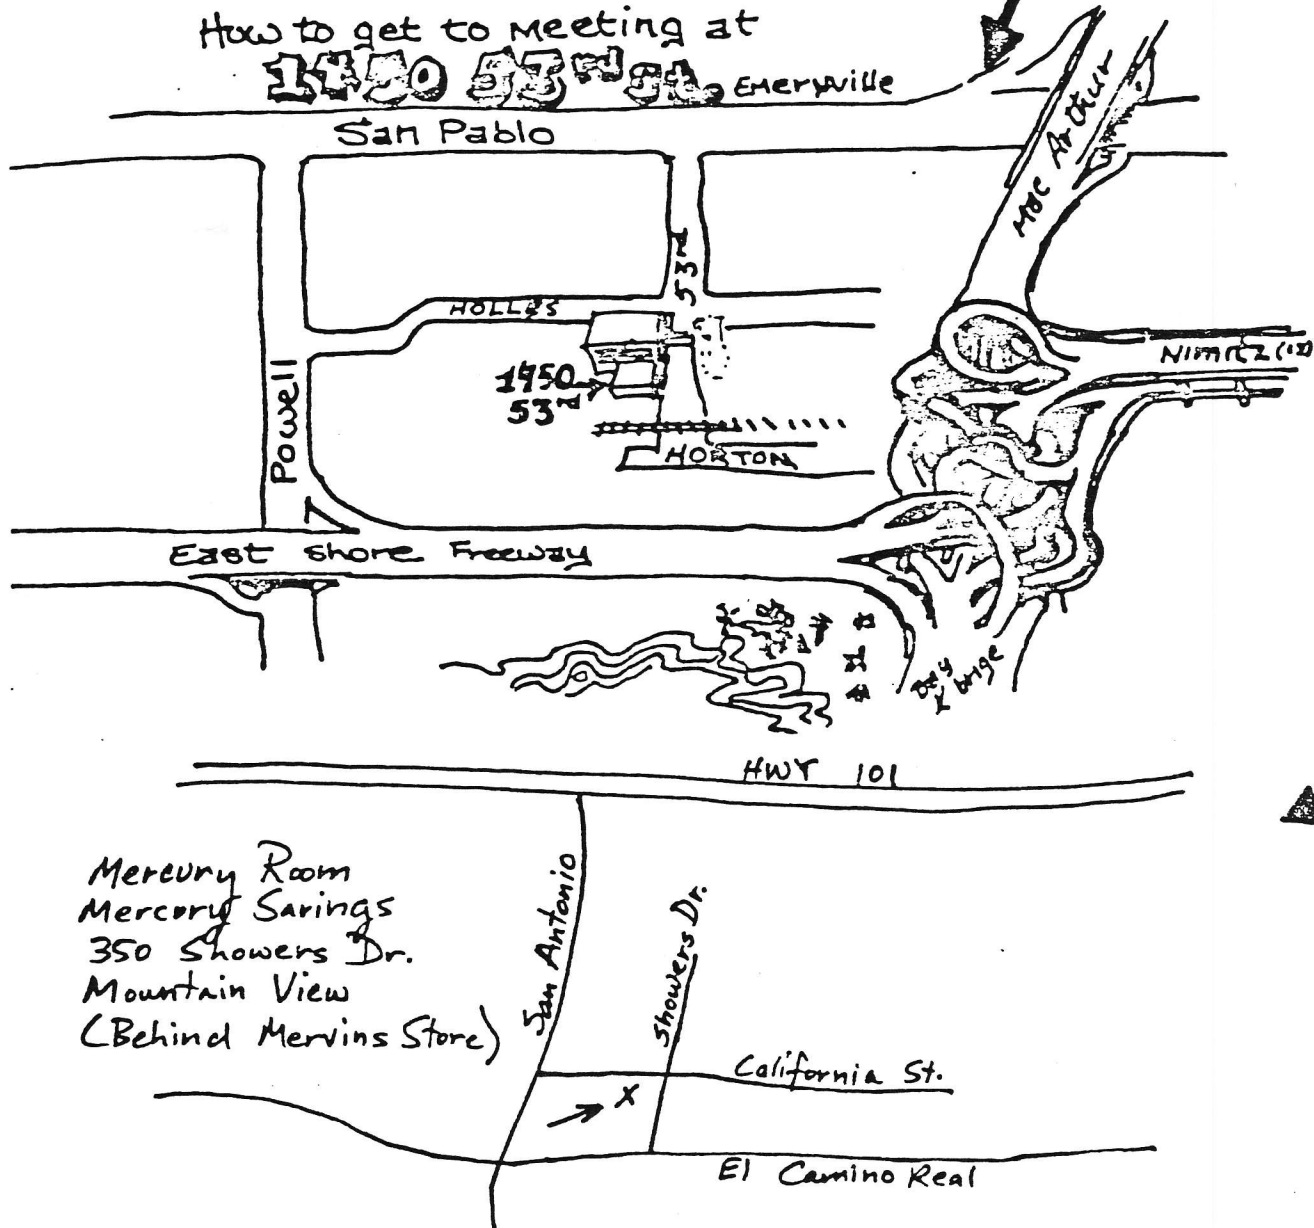 How to get to Meeting at
1450 53rd St. Emeryville
San Pablo
Mac Arthur
53rd
HOLLES
Nimitz
1450
53rd
Powell
HORTON
East shore Freeway
Bay
brige
HWY 101
Mercury Room
Mercury Savings
350 Showers Dr.
Mountain View
(Behind Mervins Store)
San Antonio
Showers Dr.
California St.
X
El Camino Real